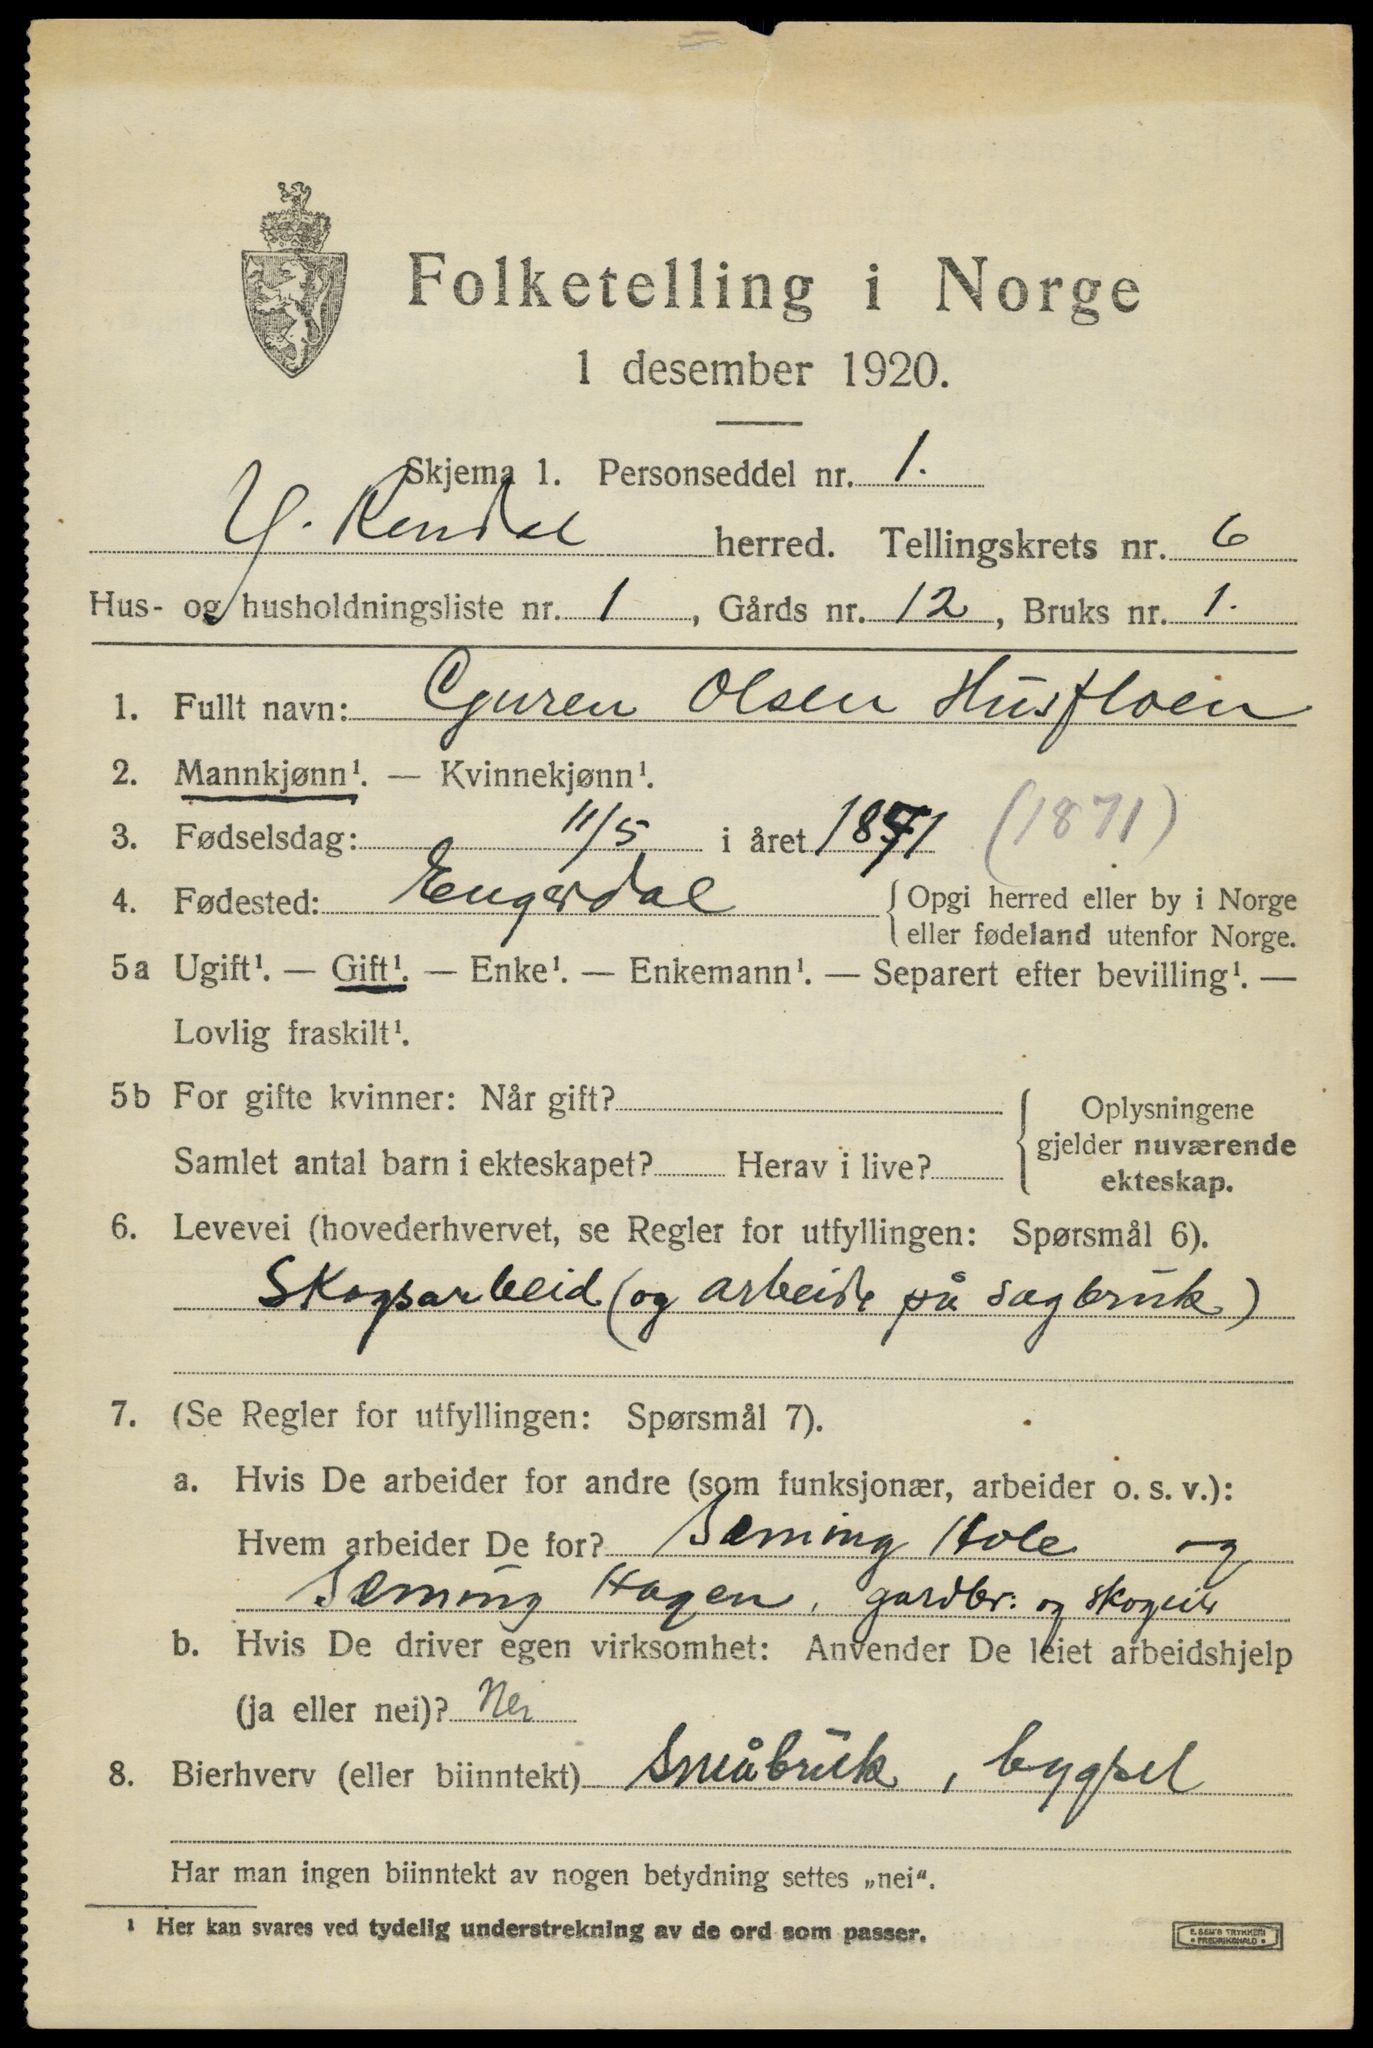 Folketelling i Norge
1 desember 1920.
Skjema 1. Personseddel nr. 1.
Y. Rendal herred. Tellingskrets nr. 6
Hus- og husholdningsliste nr. 1, Gårds nr. 12, Bruks nr. 1.
1. Fullt navn: Guren Olsen Husfloen
2. Mannkjønn¹. — Kvinnekjønn¹.
3. Fødselsdag: 11/5 i året 1871 (1871)
4. Fødested: Engerdal { Opgi herred eller by i Norge
eller fødeland utenfor Norge.
5a Ugift¹. — Gift¹. — Enke¹. — Enkemann¹. — Separert efter bevilling¹. —
Lovlig fraskilt¹.
5b For gifte kvinner: Når gift? { Oplysningene
gjelder nuværende
ekteskap.
Samlet antal barn i ekteskapet? Herav i live?
6. Levevei (hovederhvervet, se Regler for utfyllingen: Spørsmål 6).
Skogsarbeid (og arbeide på sagbruk)
7. (Se Regler for utfyllingen: Spørsmål 7).
a. Hvis De arbeider for andre (som funksjonær, arbeider o. s. v.):
Hvem arbeider De for? Sæming Hole og
Sæming Hagen, gardbr. og skogeier
b. Hvis De driver egen virksomhet: Anvender De leiet arbeidshjelp
(ja eller nei)? Nei
8. Bierhverv (eller biinntekt) Småbruk, bygsel
Har man ingen biinntekt av nogen betydning settes „nei“.
¹ Her kan svares ved tydelig understrekning av de ord som passer.
E. SEM'S TRYKKERI
• FREDRIKSHALD •